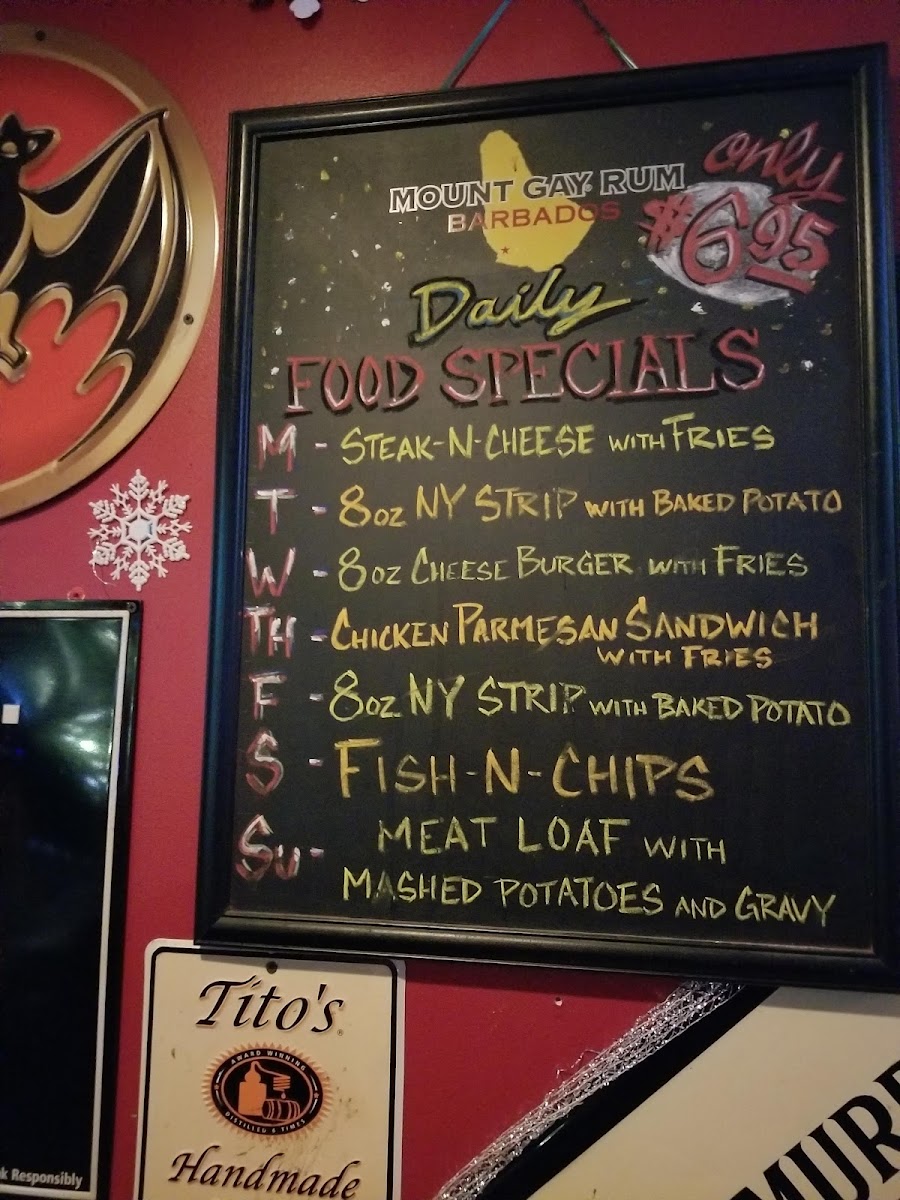 MOUNT GAY RUM
BARBADOS
only
$6.95
Daily
FOOD SPECIALS
M - STEAK-N-CHEESE WITH FRIES
T - 8oz NY STRIP WITH BAKED POTATO
W - 8oz CHEESE BURGER WITH FRIES
TH - CHICKEN PARMESAN SANDWICH
WITH FRIES
F - 8oz NY STRIP WITH BAKED POTATO
S - FISH-N-CHIPS
SU - MEAT LOAF WITH
MASHED POTATOES AND GRAVY
Tito's®
AWARD WINNING
DISTILLED 6 TIMES
Handmade
Responsibly